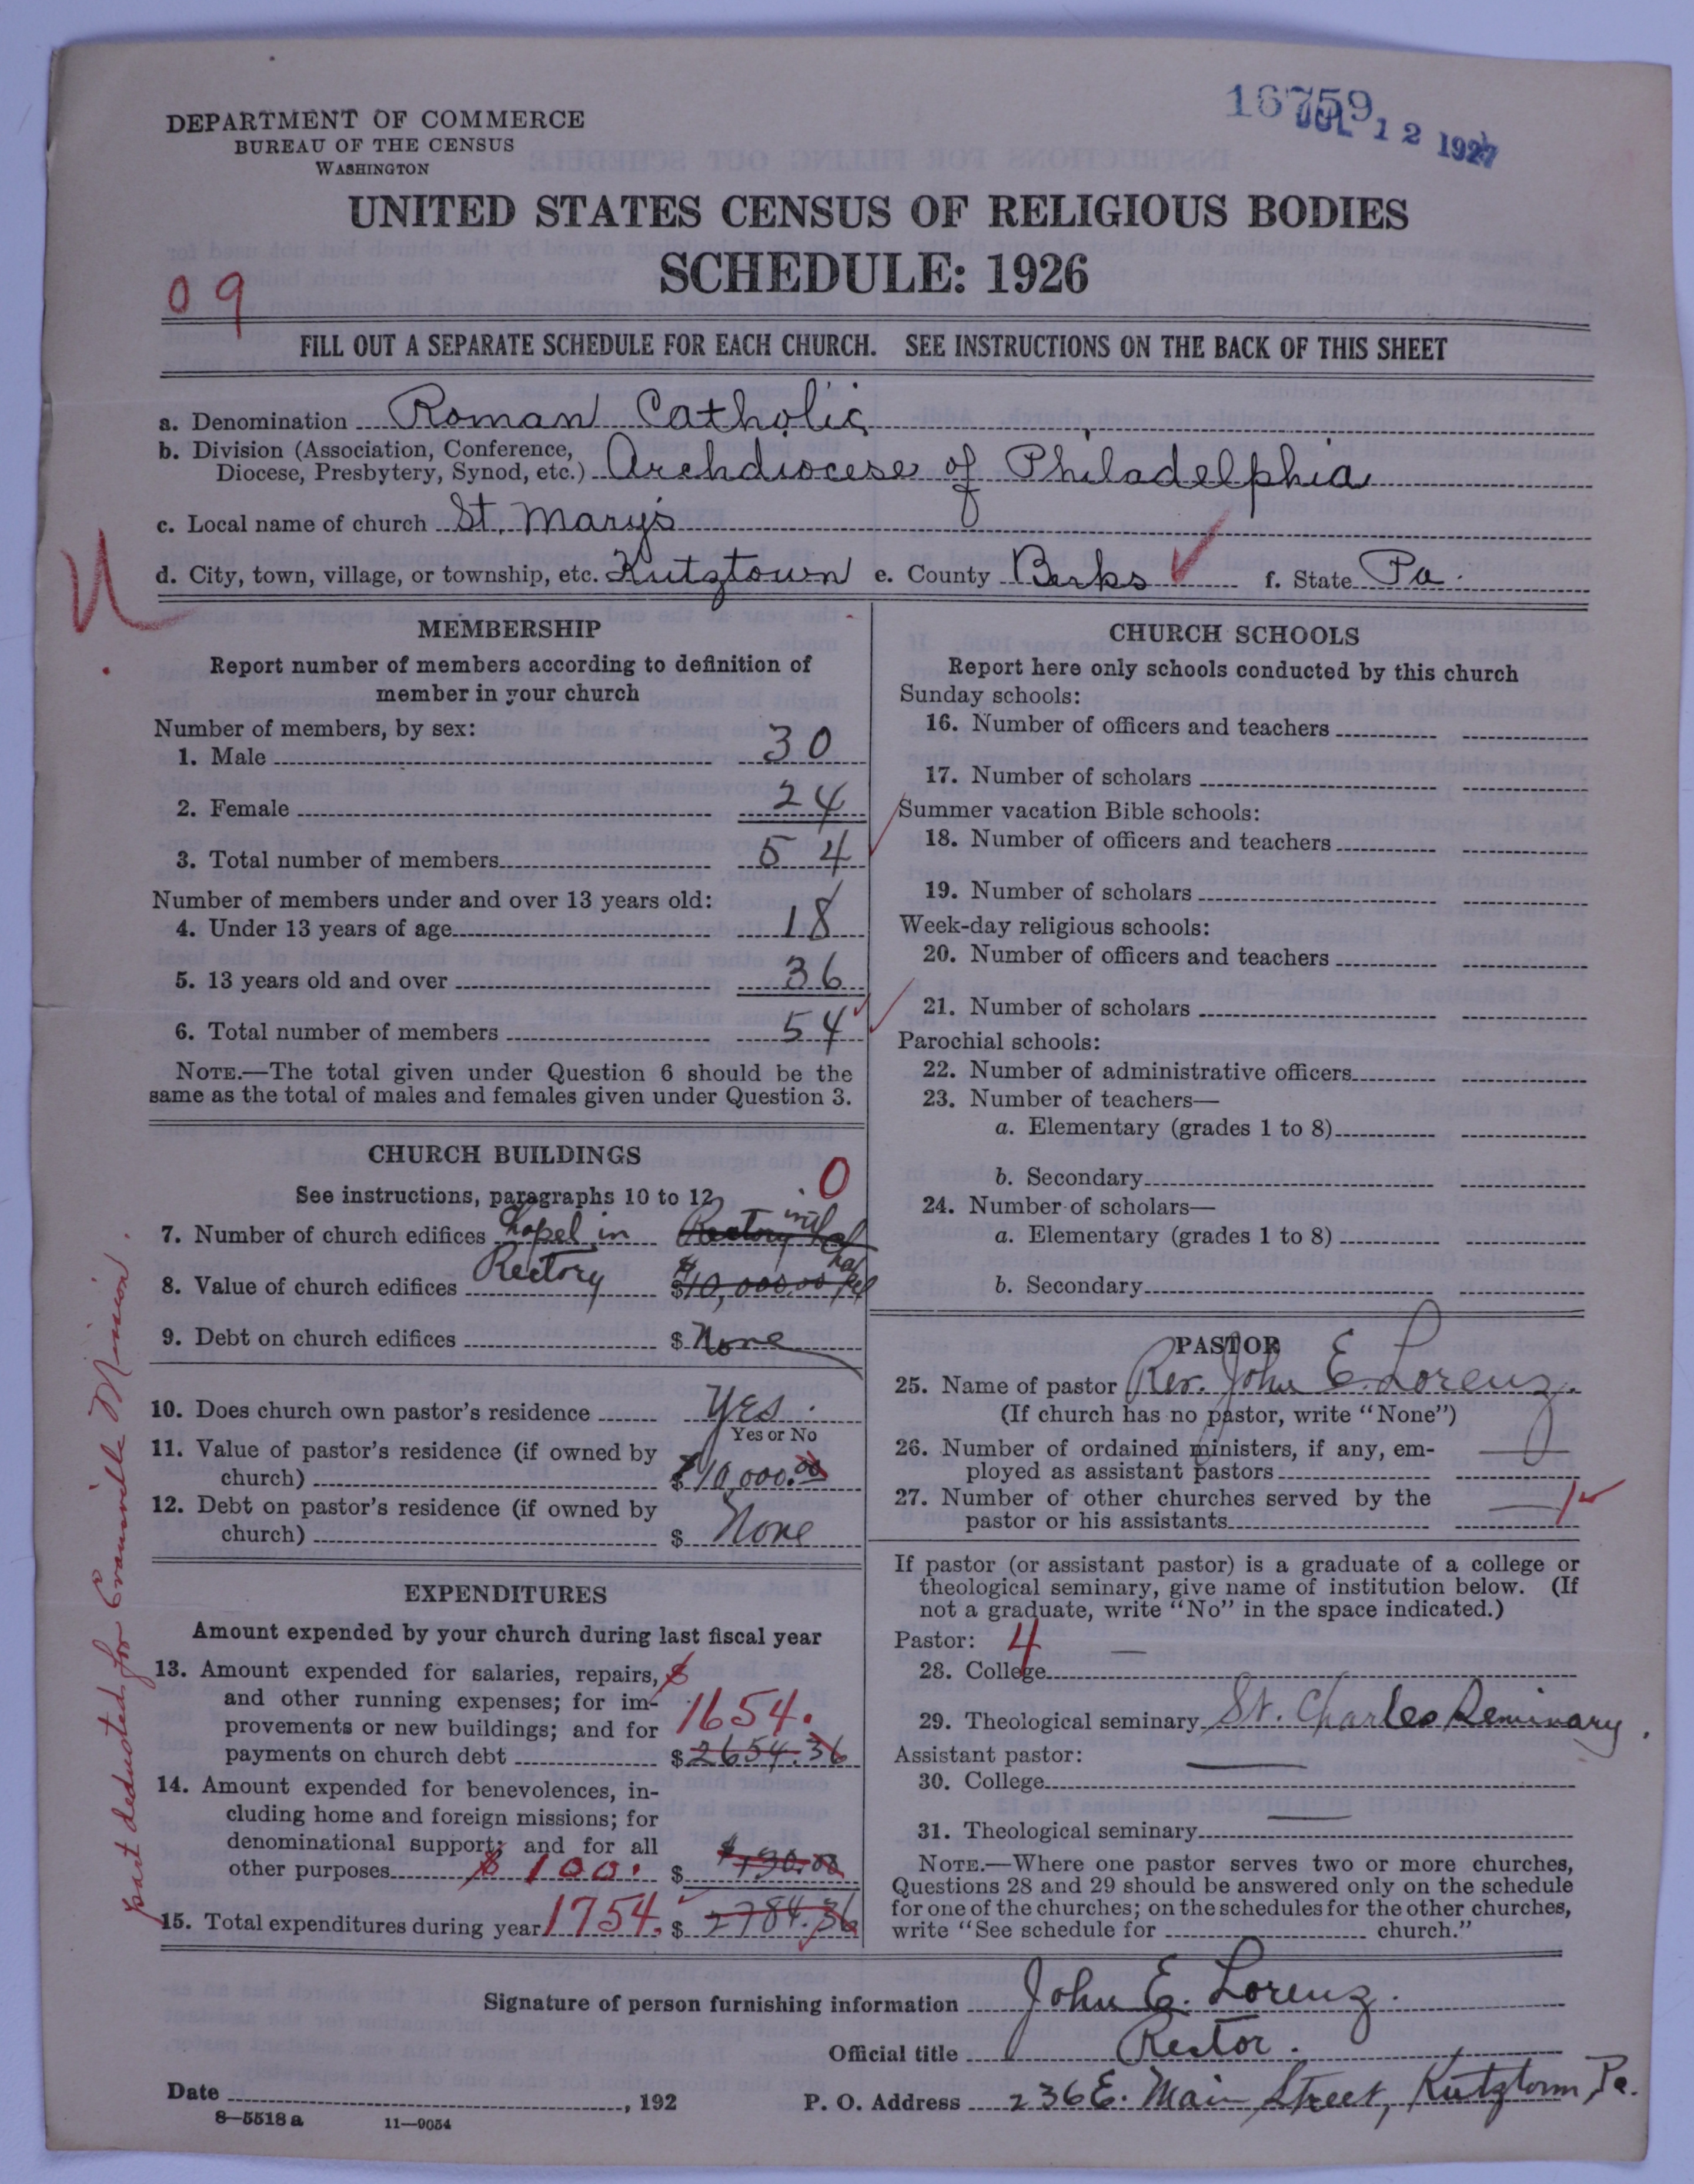 16759
JUL 12 1927
DEPARTMENT OF COMMERCE
BUREAU OF THE CENSUS
WASHINGTON
UNITED STATES CENSUS OF RELIGIOUS BODIES
SCHEDULE: 1926
09
FILL OUT A SEPARATE SCHEDULE FOR EACH CHURCH. SEE INSTRUCTIONS ON THE BACK OF THIS SHEET
a. Denomination Roman Catholic
b. Division (Association, Conference,
Diocese, Presbytery, Synod, etc.) Archdiocese of Philadelphia
c. Local name of church St. Mary's
d. City, town, village, or township, etc. Kutztown e. County Berks f. State Pa.
MEMBERSHIP
Report number of members according to definition of
member in your church
Number of members, by sex:
1. Male 30
2. Female 24
3. Total number of members 54
Number of members under and over 13 years old:
4. Under 13 years of age 18
5. 13 years old and over 36
6. Total number of members 54
NOTE.—The total given under Question 6 should be the
same as the total of males and females given under Question 3.
CHURCH BUILDINGS
See instructions, paragraphs 10 to 12 0
7. Number of church edifices Chapel in Rectory with Chapel
8. Value of church edifices Rectory $10,000.00
9. Debt on church edifices $ None
10. Does church own pastor's residence Yes.
Yes or No
11. Value of pastor's residence (if owned by
church) $ 10,000.00
12. Debt on pastor's residence (if owned by
church) $ None
EXPENDITURES
Amount expended by your church during last fiscal year
13. Amount expended for salaries, repairs, $
and other running expenses; for im-
provements or new buildings; and for 1654.
payments on church debt $ 2654.36
14. Amount expended for benevolences, in-
cluding home and foreign missions; for
denominational support; and for all
other purposes $ 100. $ $130.00
15. Total expenditures during year 1754. $ 2784.36
part deducted for Evansville Mission.
CHURCH SCHOOLS
Report here only schools conducted by this church
Sunday schools:
16. Number of officers and teachers
17. Number of scholars
Summer vacation Bible schools:
18. Number of officers and teachers
19. Number of scholars
Week-day religious schools:
20. Number of officers and teachers
21. Number of scholars
Parochial schools:
22. Number of administrative officers
23. Number of teachers—
a. Elementary (grades 1 to 8)
b. Secondary
24. Number of scholars—
a. Elementary (grades 1 to 8)
b. Secondary
PASTOR
25. Name of pastor Rev. John E. Lorenz.
(If church has no pastor, write "None")
26. Number of ordained ministers, if any, em-
ployed as assistant pastors —
27. Number of other churches served by the
pastor or his assistants — 1
If pastor (or assistant pastor) is a graduate of a college or
theological seminary, give name of institution below. (If
not a graduate, write "No" in the space indicated.)
Pastor: 4
28. College —
29. Theological seminary St. Charles Seminary.
Assistant pastor:
30. College —
31. Theological seminary —
NOTE.—Where one pastor serves two or more churches,
Questions 28 and 29 should be answered only on the schedule
for one of the churches; on the schedules for the other churches,
write "See schedule for church."
Signature of person furnishing information John E. Lorenz.
Official title Rector.
Date , 192 P. O. Address 236 E. Main Street, Kutztown, Pa.
8—5518 a 11—9054